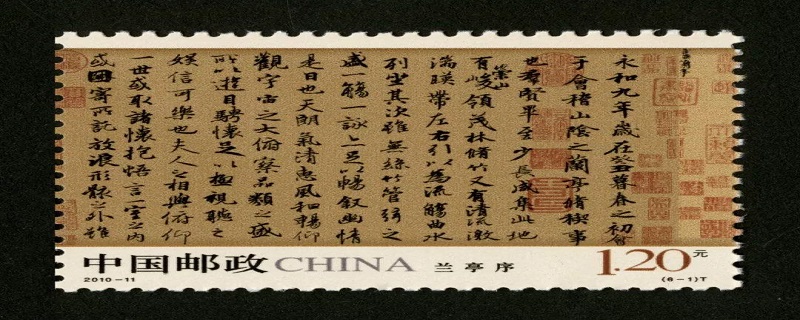 永和九年歲在癸丑暮春之初會
于會稽山陰之蘭亭脩稧事
也羣賢畢至少長咸集此地
有崇山峻領茂林脩竹又有清流激
湍暎帶左右引以為流觴曲水
列坐其次雖無絲竹管弦之
盛一觴一詠亦足以暢敘幽情
是日也天朗氣清惠風和暢仰
觀宇宙之大俯察品類之盛
所以遊目騁懷足以極視聽之
娛信可樂也夫人之相與俯仰
一世或取諸懷抱悟言一室之內
或因寄所託放浪形骸之外雖
中国邮政 CHINA 兰亭序 1.20元
2010-11 (6-1)T